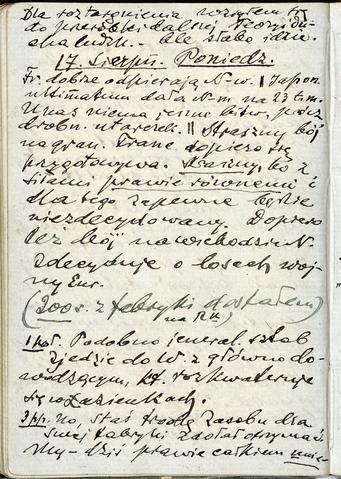 Dla roztargnienia wziąłem się
do przeróbki dalszej Teorji du-
cha ludz. - Ale słabo idzie.
17. Sierpn. Poniedz.
Fr. dobrze odpierają N-w. || Japon.
ultimatum dała N-m na 23 t. m.
U nas niema jeszcze bitw, prócz
drobn. utarczek. || Straszny bój
na gran. Franc. dopiero się
przygotowywa. Straszny, bo z
siłami prawie równemi i
dla tego zapewne będzie
niezdecydowany. Dopiero
też bój na wschodzie N.
zdecyduje o losach woj-
ny Eur.
(200 r. z fabryki dostałem)
na R-k
1 poł. Podobno jeneral. sztab
zjedzie do W. z głównodo-
wodzącym, rozkwateruje
się w Łazienkach.
3 pp. No, Staś trochę zasobu dla
swej fabryki zdołał otrzymać
My - dziś prawie całkiem